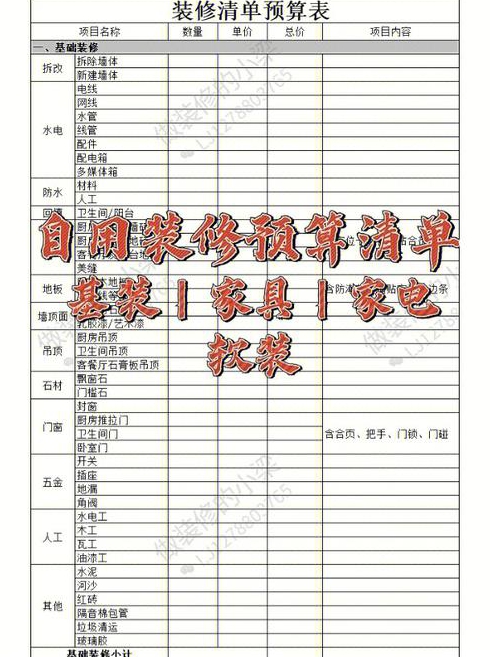 装修清单预算表
项目名称 数量 单价 总价 项目内容
一、基础装修
拆改 拆除墙体
新建墙体
水电 电线
网线
水管
线管
配件
配电箱
多媒体箱
防水 材料
人工
回填 卫生间/阳台
自用装修预算清单
美缝
地板
基装|家具|家电
软装
墙顶面
乳胶漆/艺术漆
吊顶 厨房吊顶
卫生间吊顶
客餐厅石膏板吊顶
石材 飘窗石
门槛石
门窗 封窗
厨房推拉门
卫生间门 含合页、把手、门锁、门碰
卧室门
五金 开关
插座
地漏
角阀
人工 水电工
木工
瓦工
油漆工
其他 水泥
河沙
红砖
隔音棉包管
垃圾清运
玻璃胶
基础装修小计
做装修的小梁
LJ1278803765